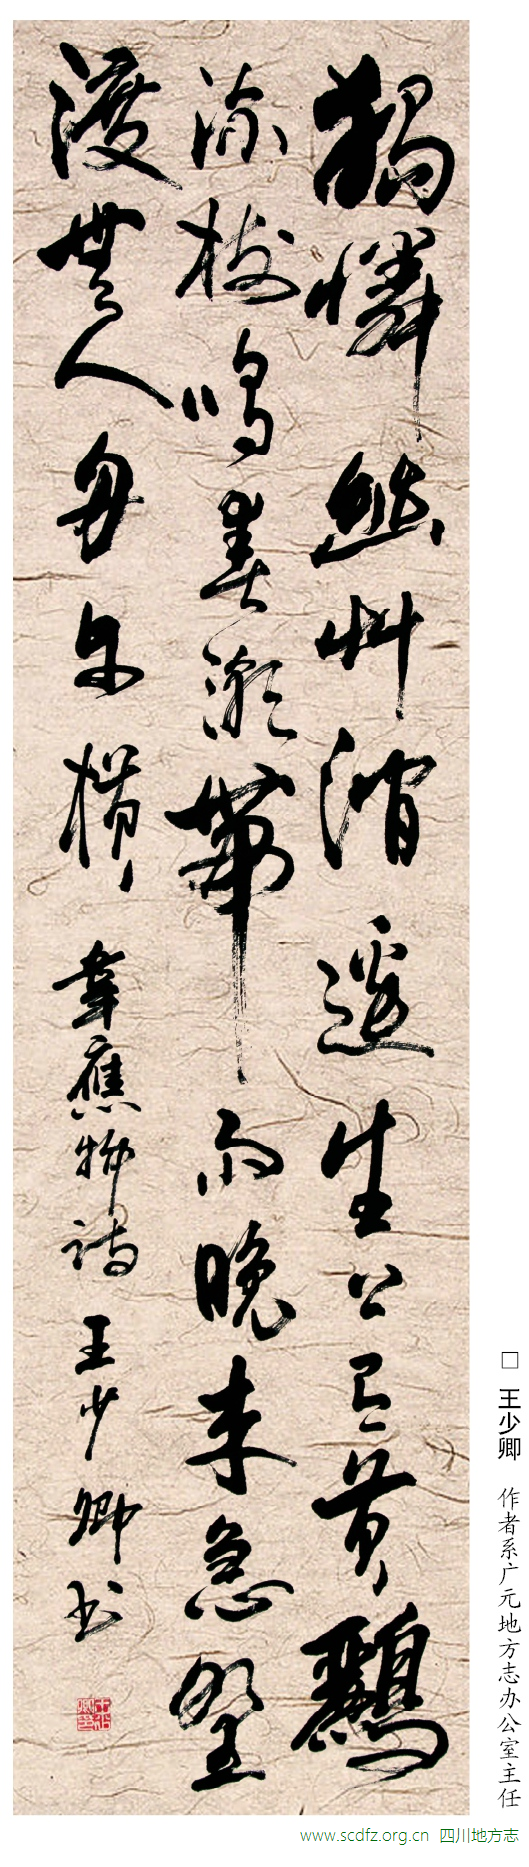 獨憐幽艸澗邊生上有黃鸝
深樹鳴春潮帶雨晚来急野
渡無人舟自橫 韋應物詩 王少卿书
□ 王少卿 作者系广元地方志办公室主任
www.scdfz.org.cn 四川地方志